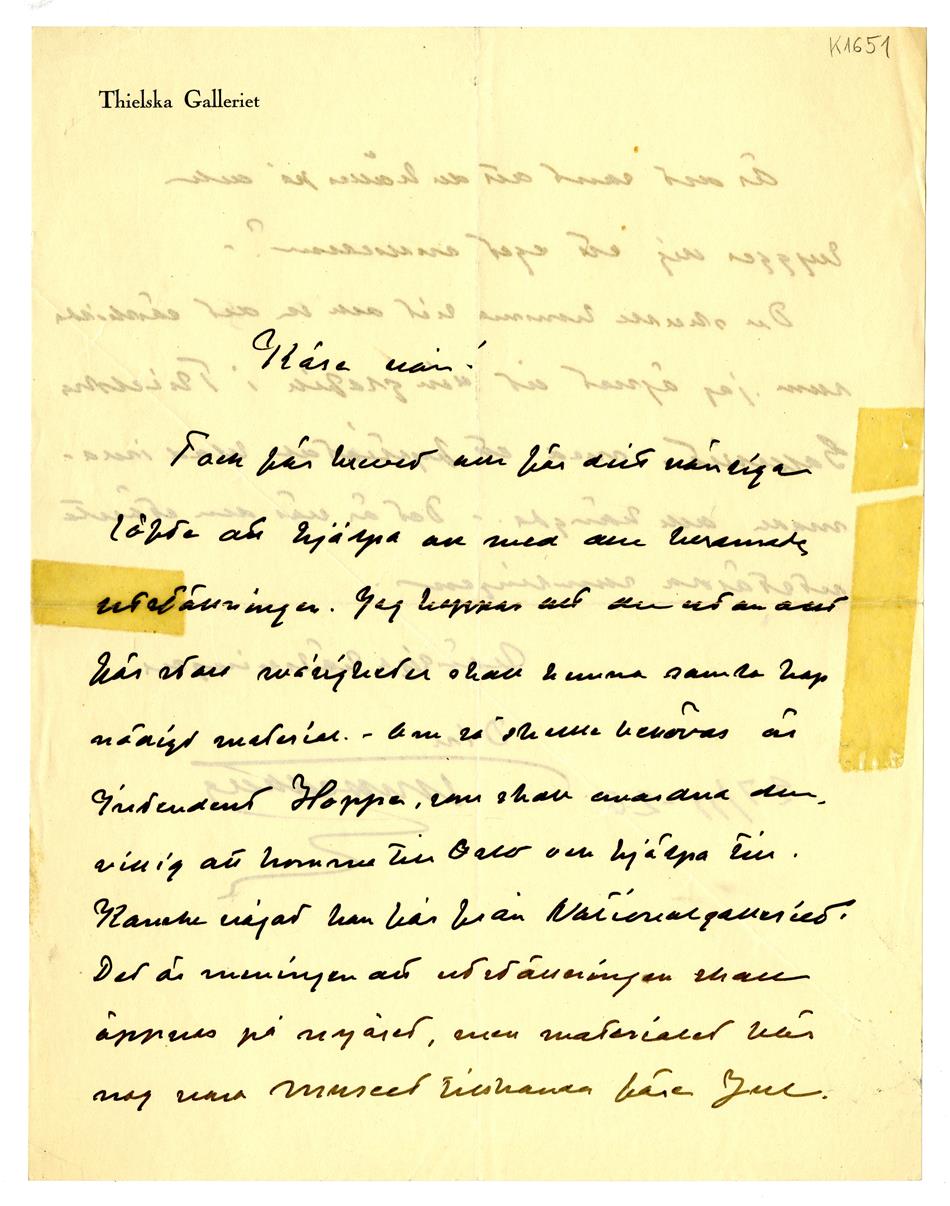 K1651
Thielska Galleriet
Käre vän!
Tack för brevet och för ditt vänliga
löfte att hjälpa oss med den beramade
utställningen. Jag hoppas att du utan allt
för stora svårigheter skall kunna samla hop
nödigt material. - Om så skulle behövas är
Intendent Hoppe, som skall anordna den,
villig att komma till Oslo och hjälpa till.
Kanske något kan fås från Nationalgalleriet?
Det är meningen att utställningen skall
öppnas på nyåret, men materialet bör
nog vara museet tillhanda före Jul.